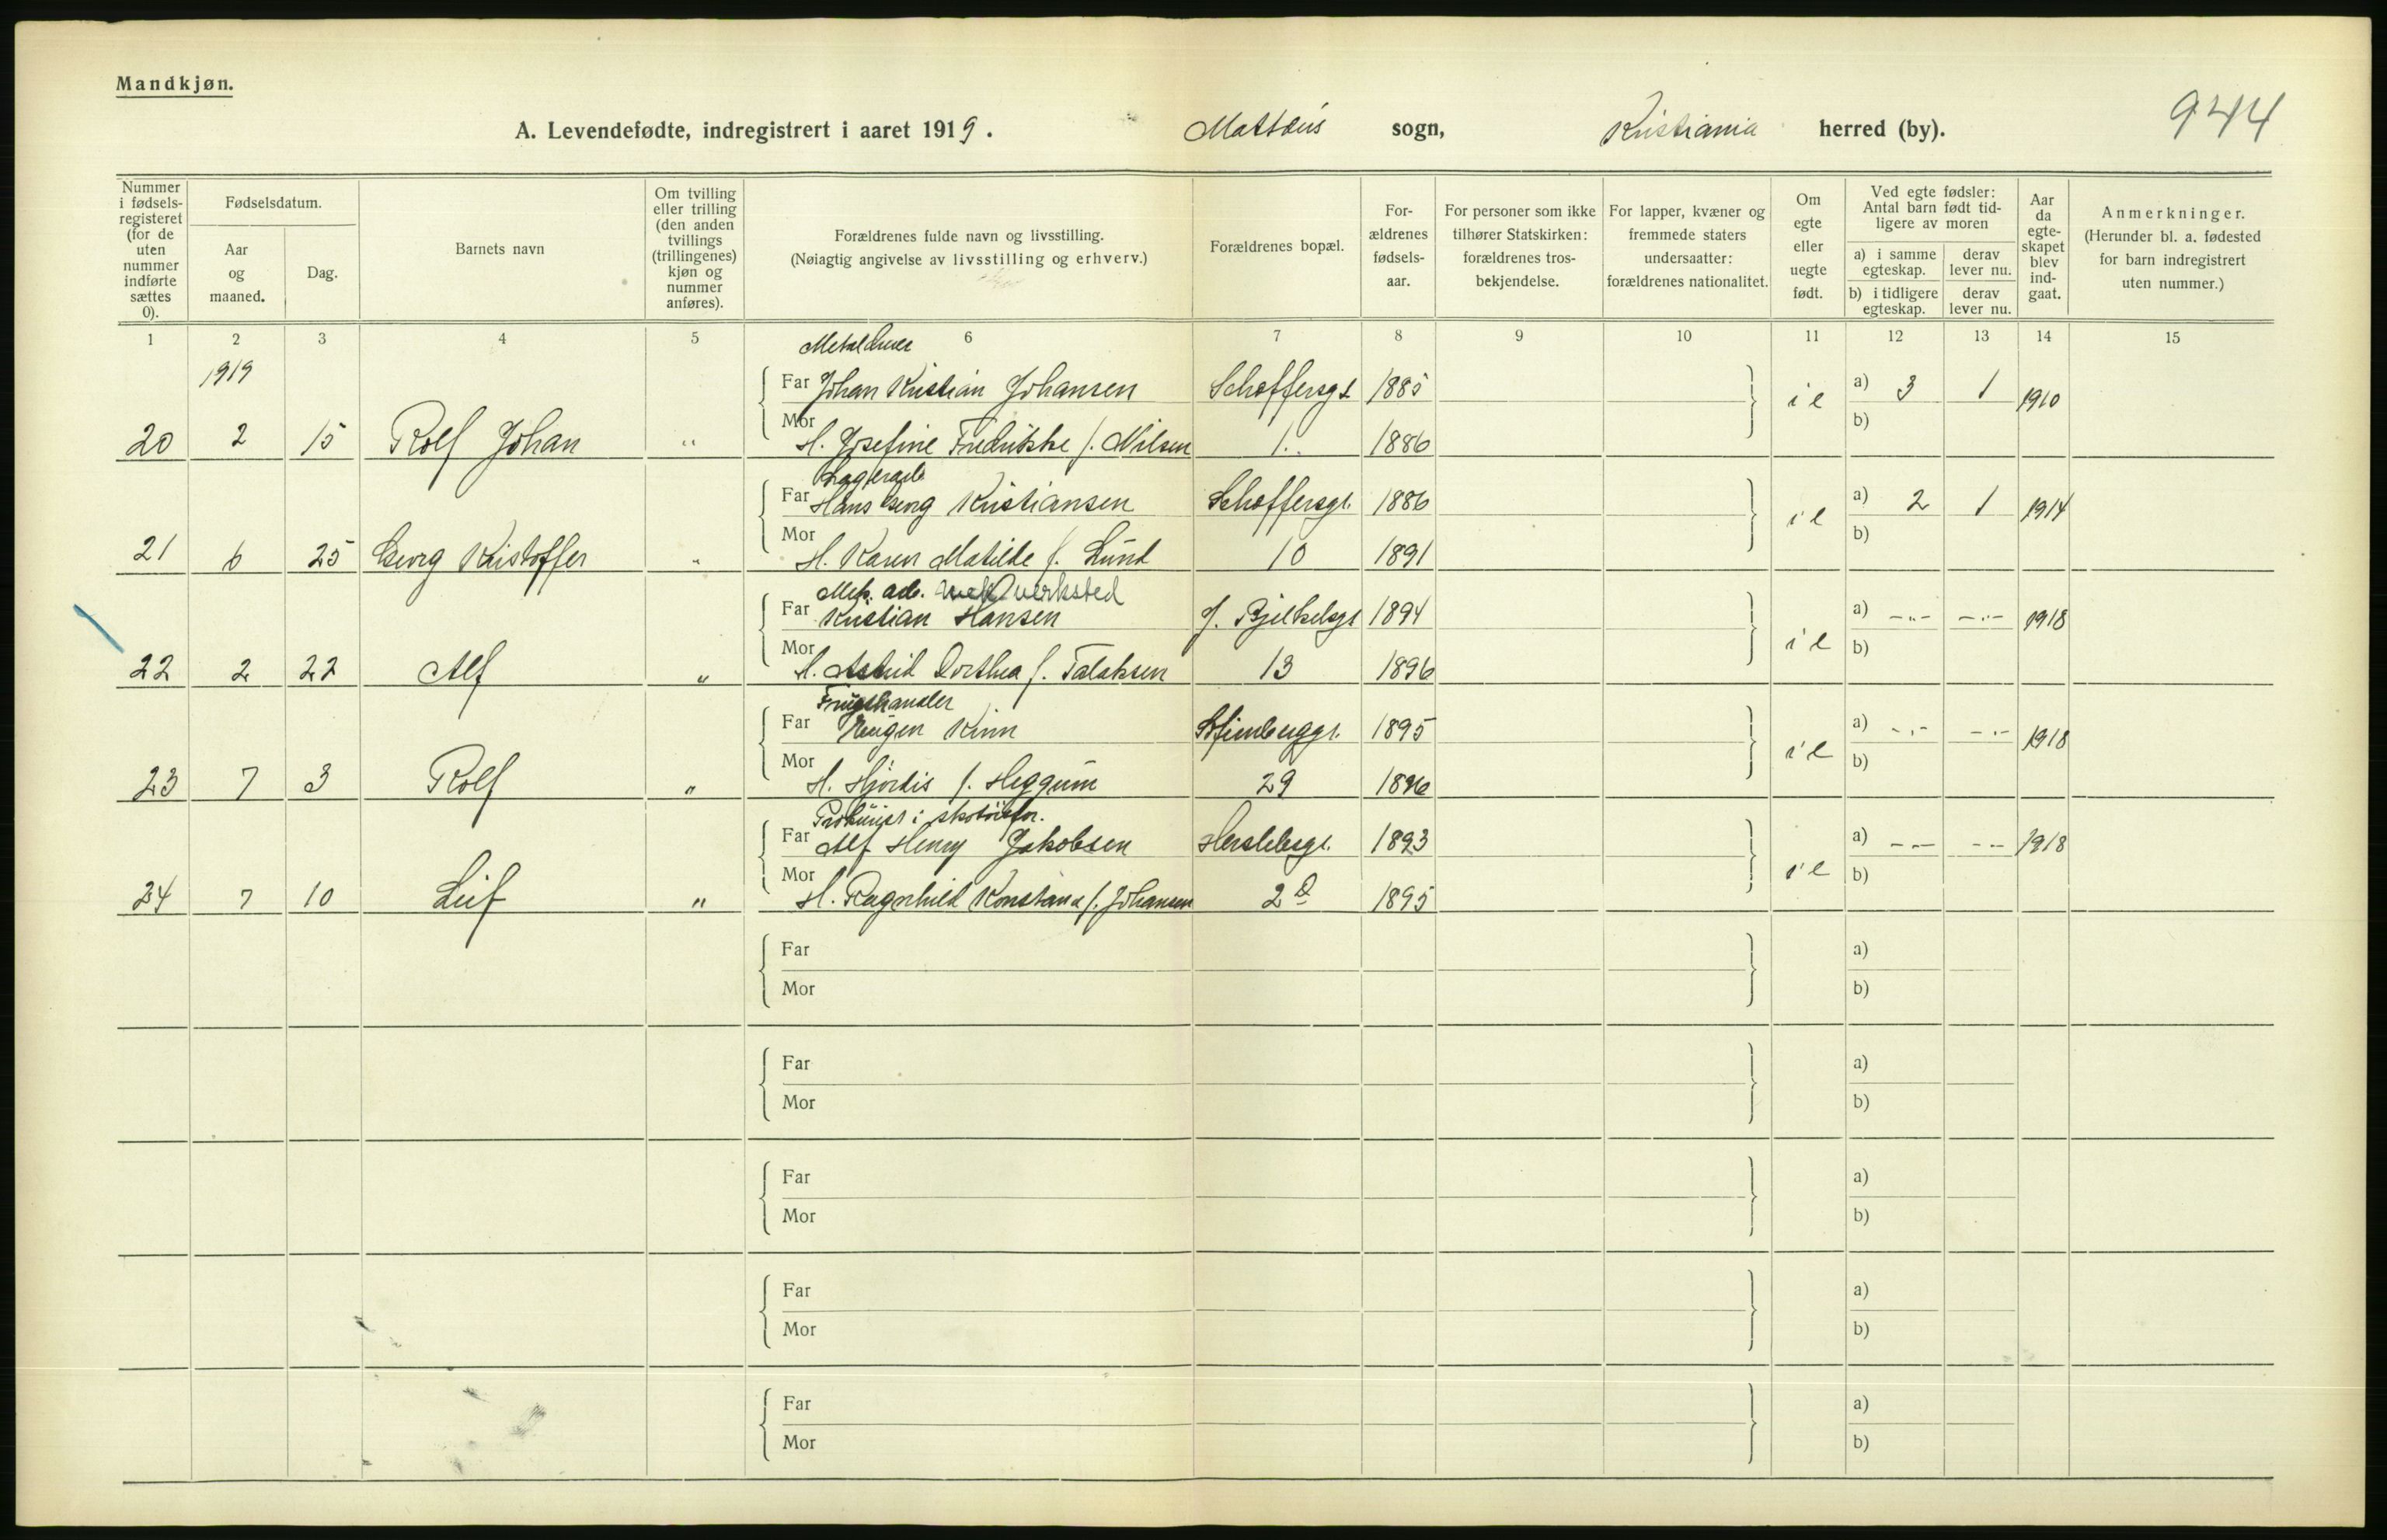 Mandkjøn.
A. Levendefødte, indregistrert i aaret 1919. Mattæus sogn, Kristiania herred (by). 944
Nummer i fødselsregisteret (for de uten nummer indførte sættes 0).
Fødselsdatum.
Aar og maaned.
Dag.
Barnets navn
Om tvilling eller trilling (den anden tvillings (trillingenes) kjøn og nummer anføres).
Forældrenes fulde navn og livsstilling.
(Nøiagtig angivelse av livsstilling og erhverv.)
Forældrenes bopæl.
Forældrenes fødselsaar.
For personer som ikke tilhører Statskirken: forældrenes trosbekjendelse.
For lapper, kvæner og fremmede staters undersaatter: forældrenes nationalitet.
Om egte eller uegte født.
Ved egte fødsler: Antal barn født tidligere av moren
a) i samme egteskap. derav lever nu.
b) i tidligere egteskap. derav lever nu.
Aar da egteskapet blev indgaat.
Anmerkninger.
(Herunder bl. a. fødested for barn indregistrert uten nummer.)
1 2 3 4 5 6 7 8 9 10 11 12 13 14 15
1919
Far Johan Kristian Johansen Schæffersgt 1885 i e a) 3 1 1910
20 2 15 Rolf Johan " Mor H. Josefine Fredrikke f. Nilsen 1. 1886 b)
Far Hans Georg Kristiansen Schæffersgt. 1886 i e a) 2 1 1914
21 6 25 Georg Kristoffer " Mor H. Karen Matilde f. Lund 10 1891 b)
Mek. arb. verksted
Far Kristian Hansen J. Bjelkesgt 1894 i e a) -"- -"- 1918
22 2 22 Alf " Mor H. Astrid Dorthea f. Talaksen 13 1896 b)
Far Eugen Kinn 1895 i e a) -"- -"- 1918
23 7 3 Rolf " Mor H. Hjørdis f. Heggum 29 1896 b)
i skotøisfor.
Far Alf Henry Jakobsen Herslebsgt. 1893 i e a) -"- -"- 1918
24 7 10 Leif " Mor H. Ragnhild Konstanse f. Johansen 2 1895 b)
Far a)
Mor b)
Far a)
Mor b)
Far a)
Mor b)
Far a)
Mor b)
Far a)
Mor b)